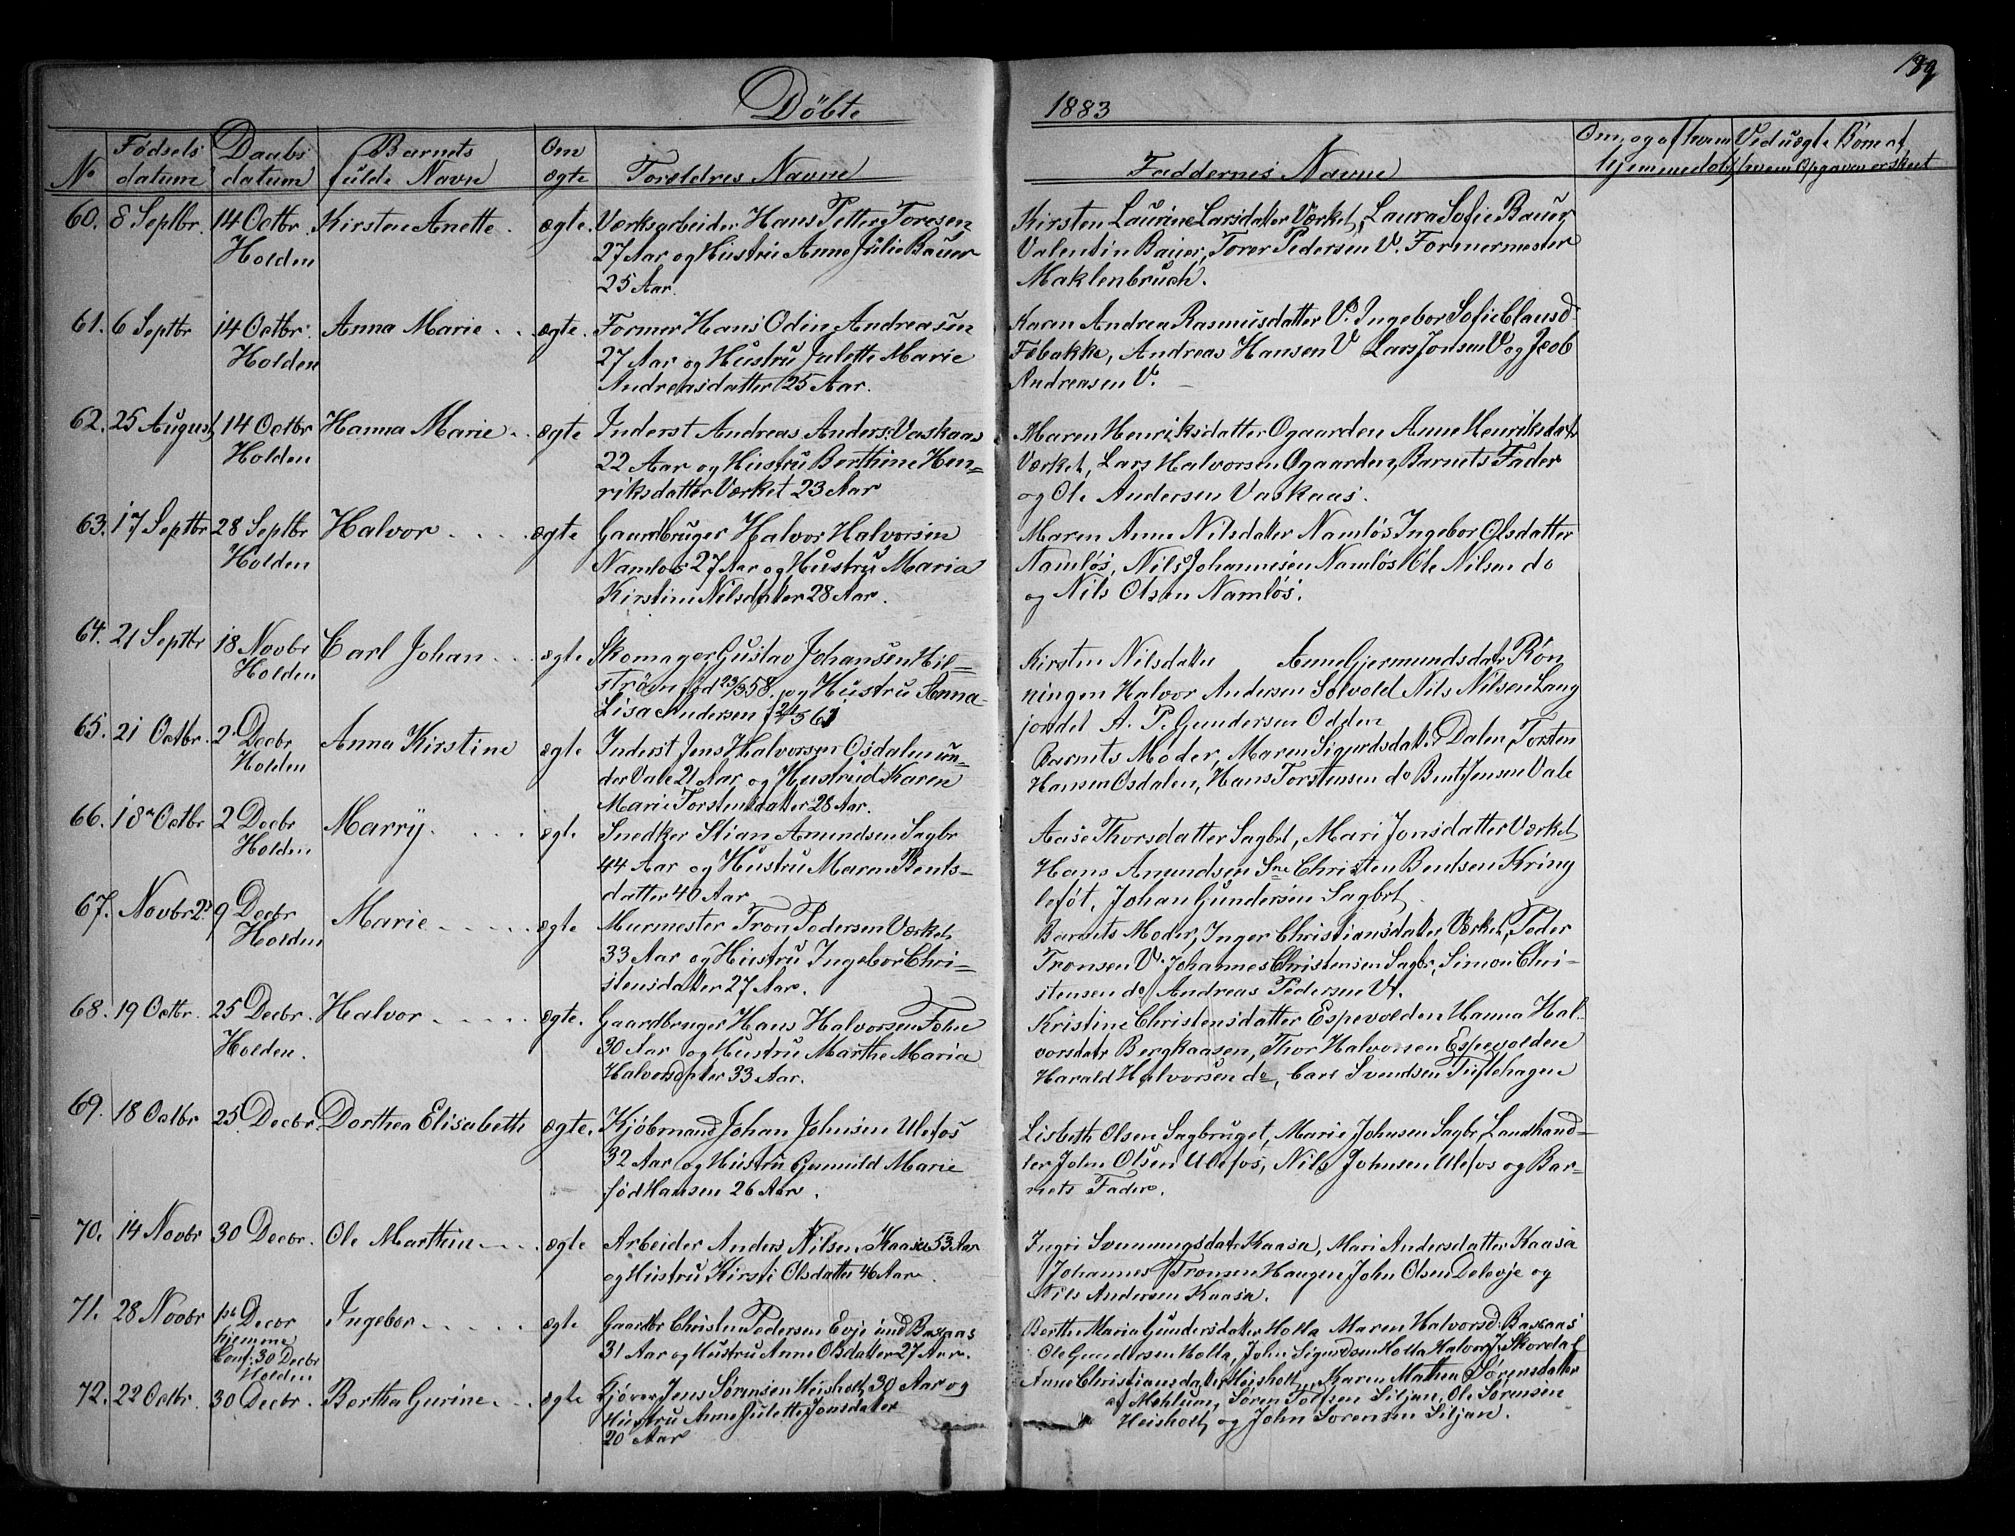 Döbte
1883
139
No
Fødsels datum
Daabs datum
Barnets fulde Navn
Om ægte
Forældres Navne
Faddernes Navne
Om, og af hvem hjemmedøbt
Ved uægte Børn af hvem Opgaven er skeet
60. 8 Septbr. 14 Octbr. Holden Kirsten Anette. ægte.
Værksarbeider Hans Petter Toresen
27 Aar og Hustru Anne Julie Bauer
25 Aar.
Kirsten Laurine Larsdatter Værket, Laura Sofie Bauer
Valentin Bauer, Torer Pedersen V. Formermester
Maklenbruch.
61. 6 Septbr 14 Octbr. Holden Anna Marie ægte.
Former Hans Odin Andreasen
27 Aar og Hustru Julette Marie
Andreasdatter 25 Aar.
Karen Andrea Rasmusdatter V. Ingebor Sofie Clausd
Febakke, Andreas Hansen V Lars Jonsen V og Jacob
Andreasen V.
62. 25 August 14 Octbr Holden Hanna Marie ægte
Inderst Andreas Anders: Vaskaas
22 Aar og Hustru Berthine Hen=
riksdatter Værket 23 Aar
Maren Henriksdatter Ogaarden Anne Henriksdatr
Værket, Lars Halvorsen Ogaarden, Barnets Fader
og Ole Andersen Vaskaas.
63. 17 Septbr 28 Septbr Holden Halvor ægte
Gaardbruger Halvor Halvorsen
Namlos 27 Aar og Hustru Maria
Kirstine Nilsdatter 28 Aar.
Maren Anne Nilsdatter Namlös Ingebor Olsdatter
Namlös, Nils Johannesen Namlös Ole Nilsen do
og Nils Olsen Namlös.
64. 21 Septbr 18 Novbr Holden Carl Johan ægte
Skomager Gustav Johansen Hil=
strøm fød 23/3 58. og Hustru Anna-
Lisa Andersen f 24/5 61
Kirsten Nilsdatter Anne Gjermundsdatr Rön
ningen Halvor Andersen Solvold Nils Nilsen Lang
jordet A. P. Gundersen Odden
65. 21 Octbr. 2 Decbr Holden Anna Kirstine ægte
Inderst Jens Halvorsen Osdalen un=
der Vale 21 Aar og Hustrud Karen
Marie Torstensdatter 28 Aar.
Barnets Moder, Maren Sigurdsdatter Dalen, Torsten
Hansen Osdalen, Hans Torstensen do Bent Jensen Vale
66. 18 Octbr 2 Decbr Holden Marry. ægte
Snedker Stian Amundsen Sagbr
44 Aar og Hustru Maren Bents-
datter 40 Aar
Aase Thorsdatter Sagbrt, Mari Jonsdatter Værket
Hans Amundsen Christen Bentsen Kring
lefót, Johan Gundersen Sagbrt
67. Novbr 9 Decbr Holden Marie ægte
Murmester Tron Pedersen Værket
33 Aar og Hustru Ingebor Chri=
stensdatter 27 Aar.
Barnets Moder, Inger Christiansdatter Værket, Peder
Tronsen V. Johannes Christensen Sagbr, Simon Chri-
stensen do Andreas Pedersen Vt.
68. 19 Octbr. 25 Decbr. Holden. Halvor ægte.
Gaardbruger Hans Halvorsen Fohn
30 Aar og Hustru Marthe Maria
Halvorsdatter 33 Aar.
Kristine Christensdatter Espevolden Hanna Hal-
vorsdatr Bergkaasen, Thor Halvorsen Espevolden
Harald Halvorsen do, Carl Svendsen Tuftehagen
69. 18 Octbr 25 Decbr. Dorthea Elisabeth ægte.
Kjöbmand Johan Johnsen Ulefos
32 Aar og Hustru Gunuld Marie
fød Hansen 26 Aar.
Lisbeth Olsen Sagbruget, Marie Johnsen Sagbr, Landhand=
ler John Olsen Ulefos, Nils Johnsen Ulefos og Bar=
nets Fader.
70. 14 Novbr 30 Decbr. Ole Marthin ægte
Arbeider Anders Nilsen Kaasa 53 Aar
og Hustru Kirsti Olsdatter 46 Aar.
Ingri Svenningsdatr Kaasa, Mari Andersdatter Kaasa
Johannes Tronsen Haugen, John Olsen Deleoje og
Nils Andersen Kaasa.
71. 28 Novbr 1st Decbr hjemme Conf: 30 Decbr Holden Ingebor ægte
Gaardbr Christen Pedersen Evje und Baskaas
31 Aar og Hustru Anne Olsdatter 27 Aar.
Berthe Maria Gundersdatter Holla Maren Halvorsd: Baskaas
Ole Gundersen Holla, John Sigurdsen Holla Halvor J. Skordal
72. 22 Octbr. 30 Decbr. Bertha Gurine ægte
Gjörer Jens Sørensen Heisholt 30 Aar og
Hustru Anne Julette Jonsdatter
20 Aar
Anne Christiansdatter Heisholt, Karen Mathea Sørensdatter
af Mehlum, Søren Tolfsen Siljan, Ole Sørensen
Heisholt og John Sorensen Siljan.